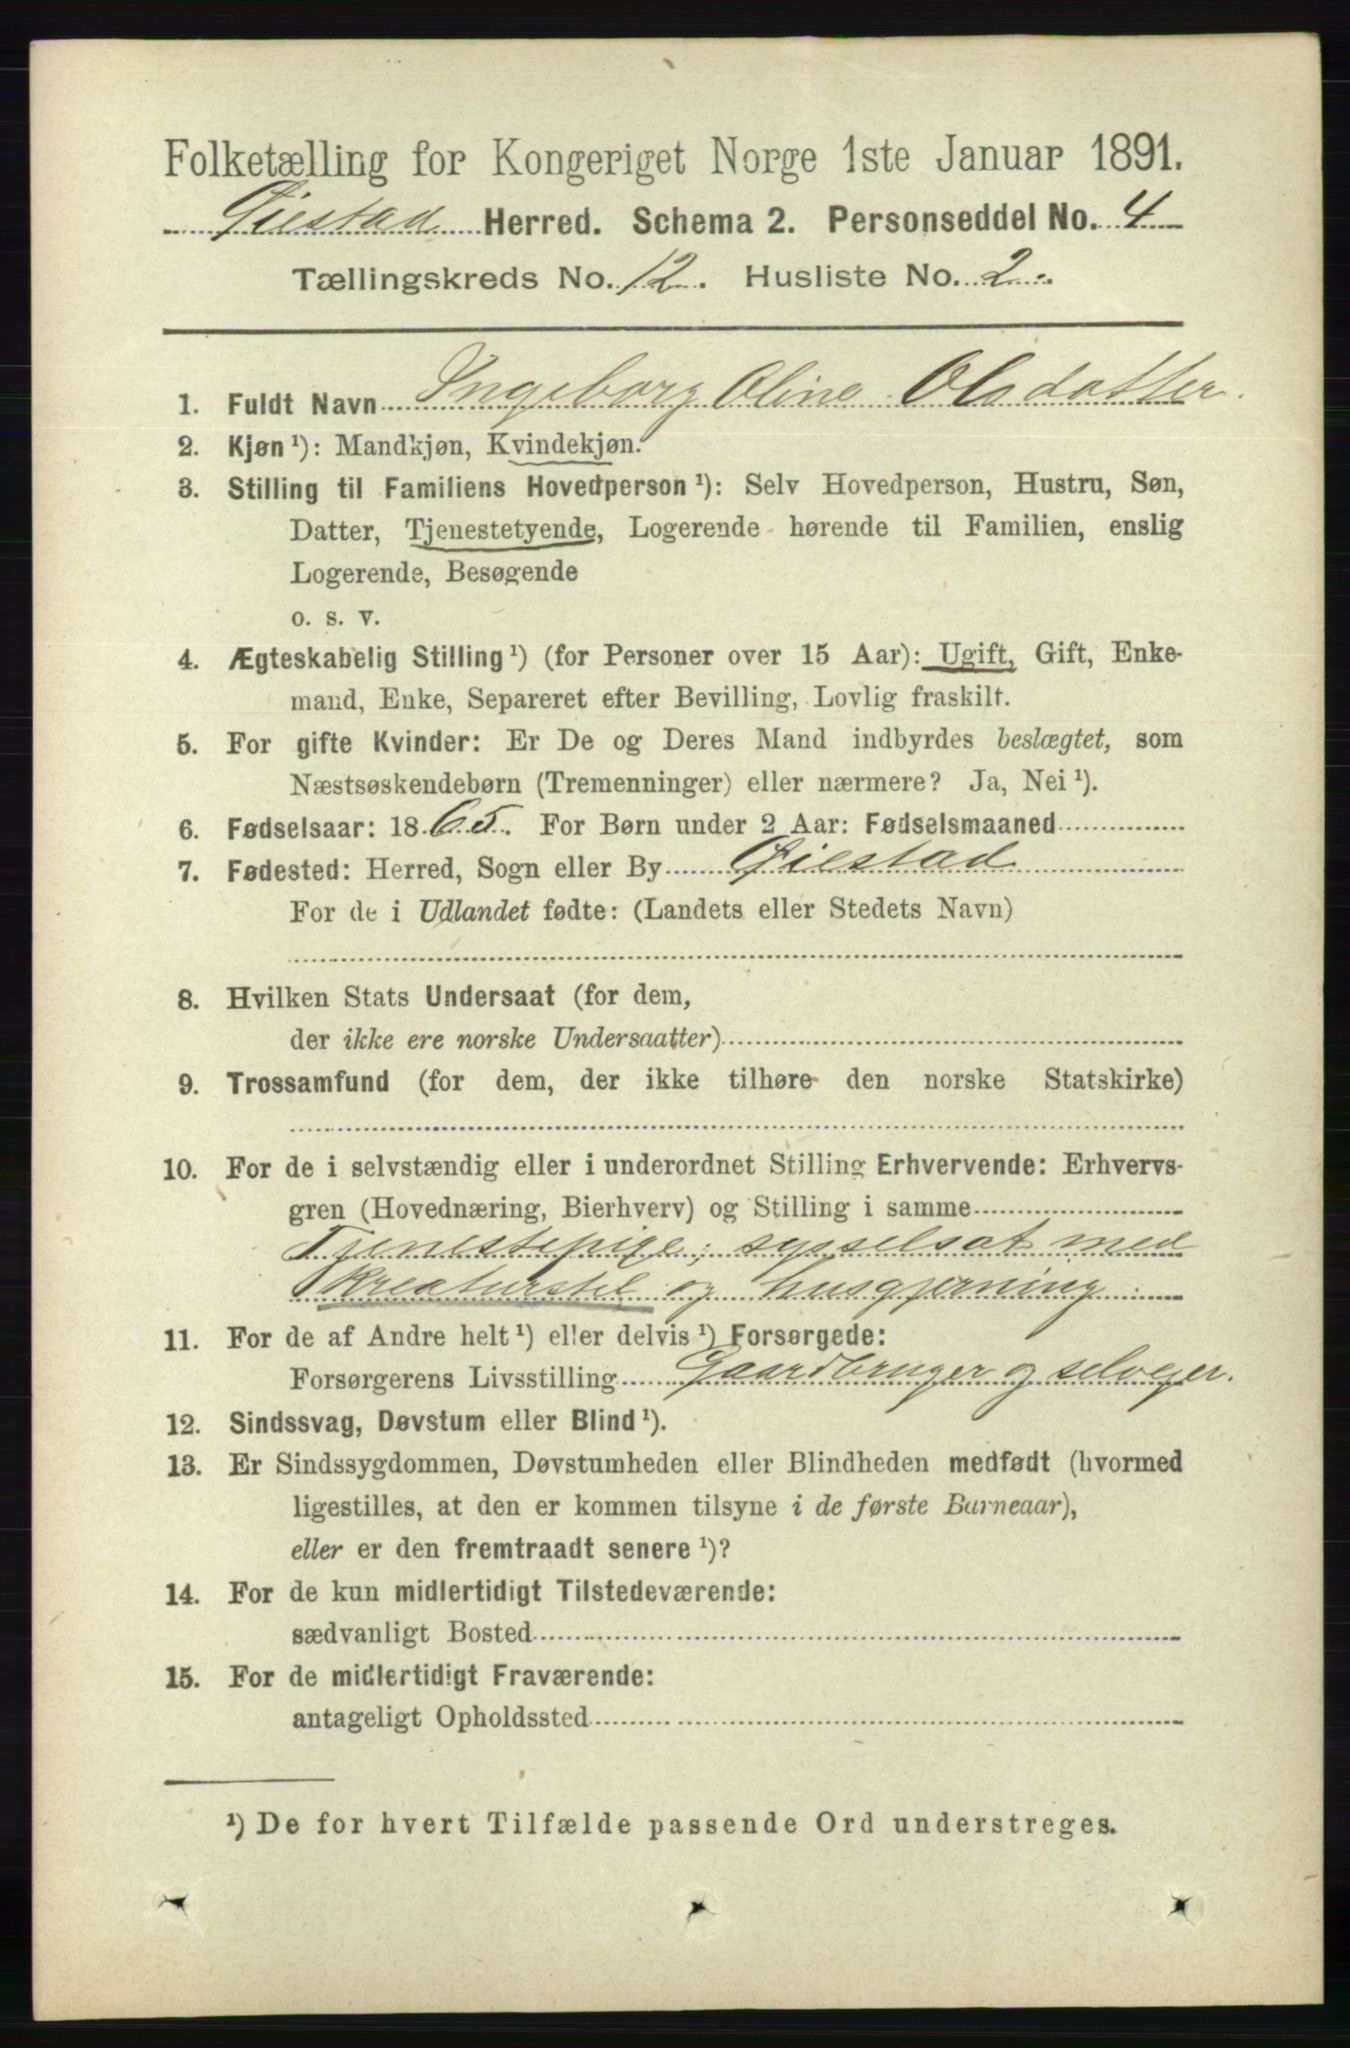 Folketælling for Kongeriget Norge 1ste Januar 1891.
Øiestad Herred. Schema 2. Personseddel No. 4
Tællingskreds No. 12. Husliste No. 2.
1. Fuldt Navn Ingeborg Oline Olsdatter.
2. Kjøn ¹): Mandkjøn, Kvindekjøn.
3. Stilling til Familiens Hovedperson ¹): Selv Hovedperson, Hustru, Søn,
Datter, Tjenestetyende, Logerende hørende til Familien, enslig
Logerende, Besøgende
o. s. v.
4. Ægteskabelig Stilling ¹) (for Personer over 15 Aar): Ugift, Gift, Enke-
mand, Enke, Separeret efter Bevilling, Lovlig fraskilt.
5. For gifte Kvinder: Er De og Deres Mand indbyrdes beslægtet, som
Næstsøskendebørn (Tremenninger) eller nærmere? Ja, Nei ¹).
6. Fødselsaar: 1865. For Børn under 2 Aar: Fødselsmaaned
7. Fødested: Herred, Sogn eller By Øiestad
For de i Udlandet fødte: (Landets eller Stedets Navn)
8. Hvilken Stats Undersaat (for dem,
der ikke ere norske Undersaatter)
9. Trossamfund (for dem, der ikke tilhøre den norske Statskirke)
10. For de i selvstændig eller i underordnet Stilling Erhvervende: Erhvervs-
gren (Hovednæring, Bierhverv) og Stilling i samme
Tjenestepige; sysselsat med
kreaturstel og husgjerning.
11. For de af Andre helt ¹) eller delvis ¹) Forsørgede:
Forsørgerens Livsstilling Gaardbruger og selveier.
12. Sindssvag, Døvstum eller Blind ¹).
13. Er Sindssygdommen, Døvstumheden eller Blindheden medfødt (hvormed
ligestilles, at den er kommen tilsyne i de første Barneaar),
eller er den fremtraadt senere ¹)?
14. For de kun midlertidigt Tilstedeværende:
sædvanligt Bosted
15. For de midlertidigt Fraværende:
antageligt Opholdssted
¹) De for hvert Tilfælde passende Ord understreges.